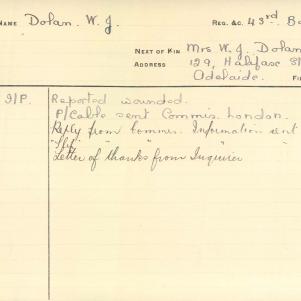 NAME Dolan. W. J. REG. &C. 43rd. Ba
NEXT OF KIN Mrs W. J. Dolan
ADDRESS 129, Halifax St
Adelaide. Fi
I/P. Reported wounded.
P/Cable sent Commis. London.
Reply from Commis. Information sent
" " "
Letter of thanks from Inquirer